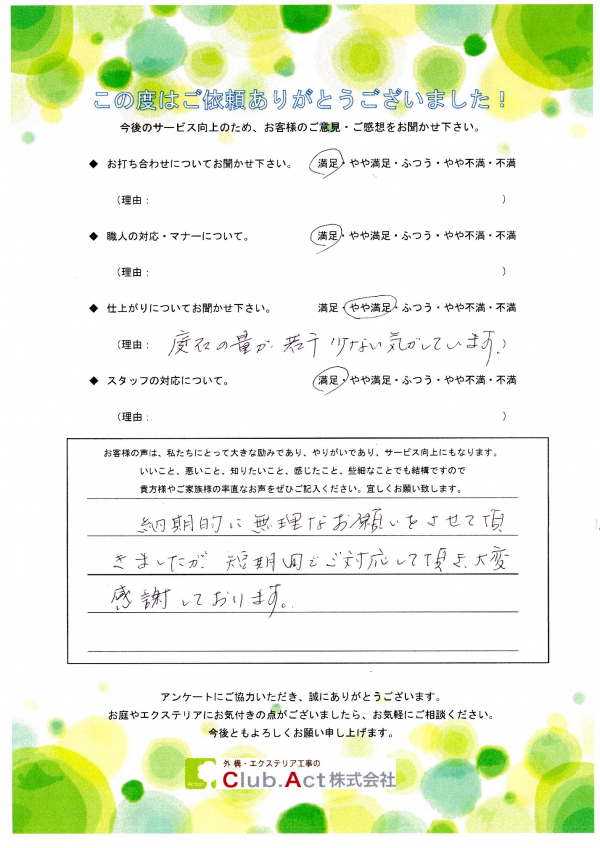 この度はご依頼ありがとうございました！
今後のサービス向上のため、お客様のご意見・ご感想をお聞かせ下さい。
◆ お打ち合わせについてお聞かせ下さい。 満足・やや満足・ふつう・やや不満・不満
（理由： ）
◆ 職人の対応・マナーについて。 満足・やや満足・ふつう・やや不満・不満
（理由： ）
◆ 仕上がりについてお聞かせ下さい。 満足・やや満足・ふつう・やや不満・不満
（理由： 庭石の量が若干少ない気がしています。）
◆ スタッフの対応について。 満足・やや満足・ふつう・やや不満・不満
（理由： ）
お客様の声は、私たちにとって大きな励みであり、やりがいであり、サービス向上にもなります。
いいこと、悪いこと、知りたいこと、感じたこと、些細なことでも結構ですので
貴方様やご家族様の率直なお声をぜひご記入ください。宜しくお願い致します。
納期的に無理なお願いをさせて頂
きましたが 短期間でご対応して頂き、大変
感謝しております。
アンケートにご協力いただき、誠にありがとうございます。
お庭やエクステリアにお気付きの点がございましたら、お気軽にご相談ください。
今後ともよろしくお願い申し上げます。
外構・エクステリア工事の
Club.Act株式会社